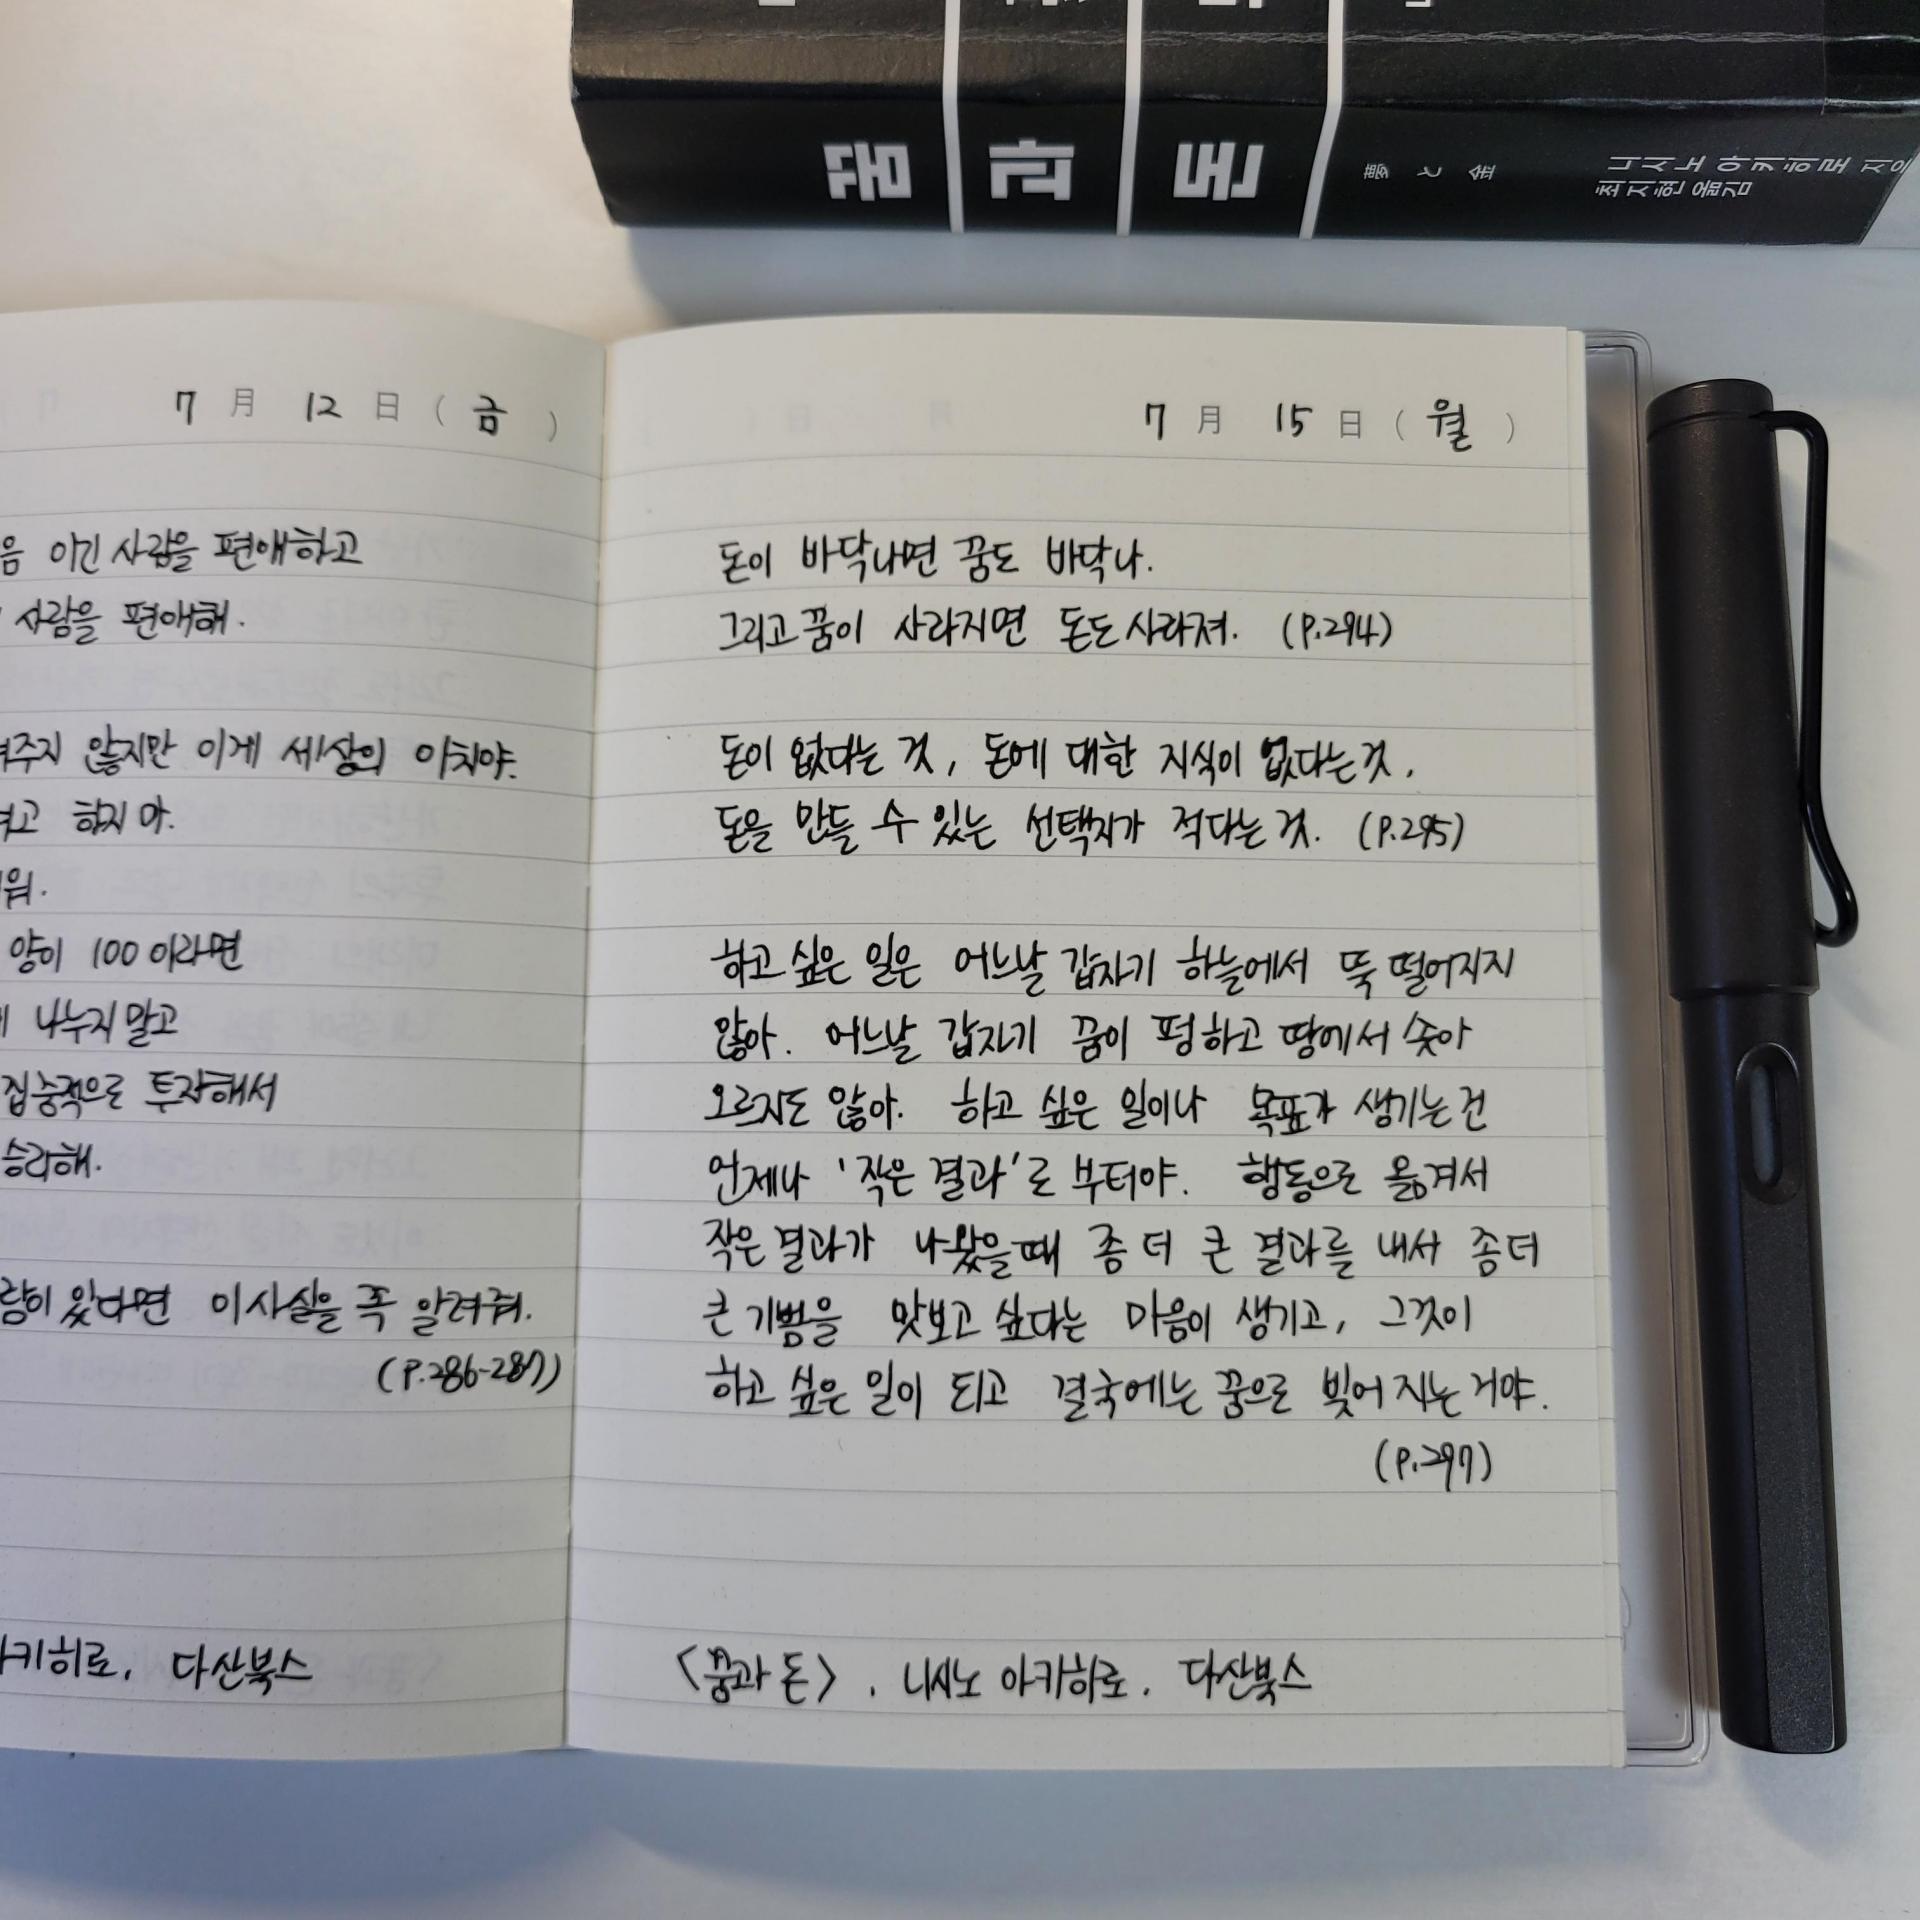 꿈 과 돈 夢と金 니시노 아키히로 지음
최지현 옮김
7 月 12 日 (금)
이긴 사람을 편애하고
사람을 편애해.
않지만 이게 세상의 이치야.
하지 마.
양이 100 이라면
나누지 말고
집중적으로 투자해서
승리해.
있다면 이 사실을 꼭 알려줘.
(P.286-287)
아키히로, 다산북스
7 月 15 日 (월)
돈이 바닥나면 꿈도 바닥나.
그리고 꿈이 사라지면 돈도 사라져. (P.294)
돈이 없다는 것, 돈에 대한 지식이 없다는 것,
돈을 만들 수 있는 선택지가 적다는 것. (P.295)
하고 싶은 일은 어느날 갑자기 하늘에서 뚝 떨어지지
않아. 어느날 갑자기 꿈이 펑하고 땅에서 솟아
오르지도 않아. 하고 싶은 일이나 목표가 생기는 건
언제나 '작은 결과'로 부터야. 행동으로 옮겨서
작은 결과가 나왔을때 좀 더 큰 결과를 내서 좀 더
큰 기쁨을 맛보고 싶다는 마음이 생기고, 그것이
하고 싶은 일이 되고 결국에는 꿈으로 빚어 지는 거야.
(P.297)
<꿈과 돈>, 니시노 아키히로, 다산북스